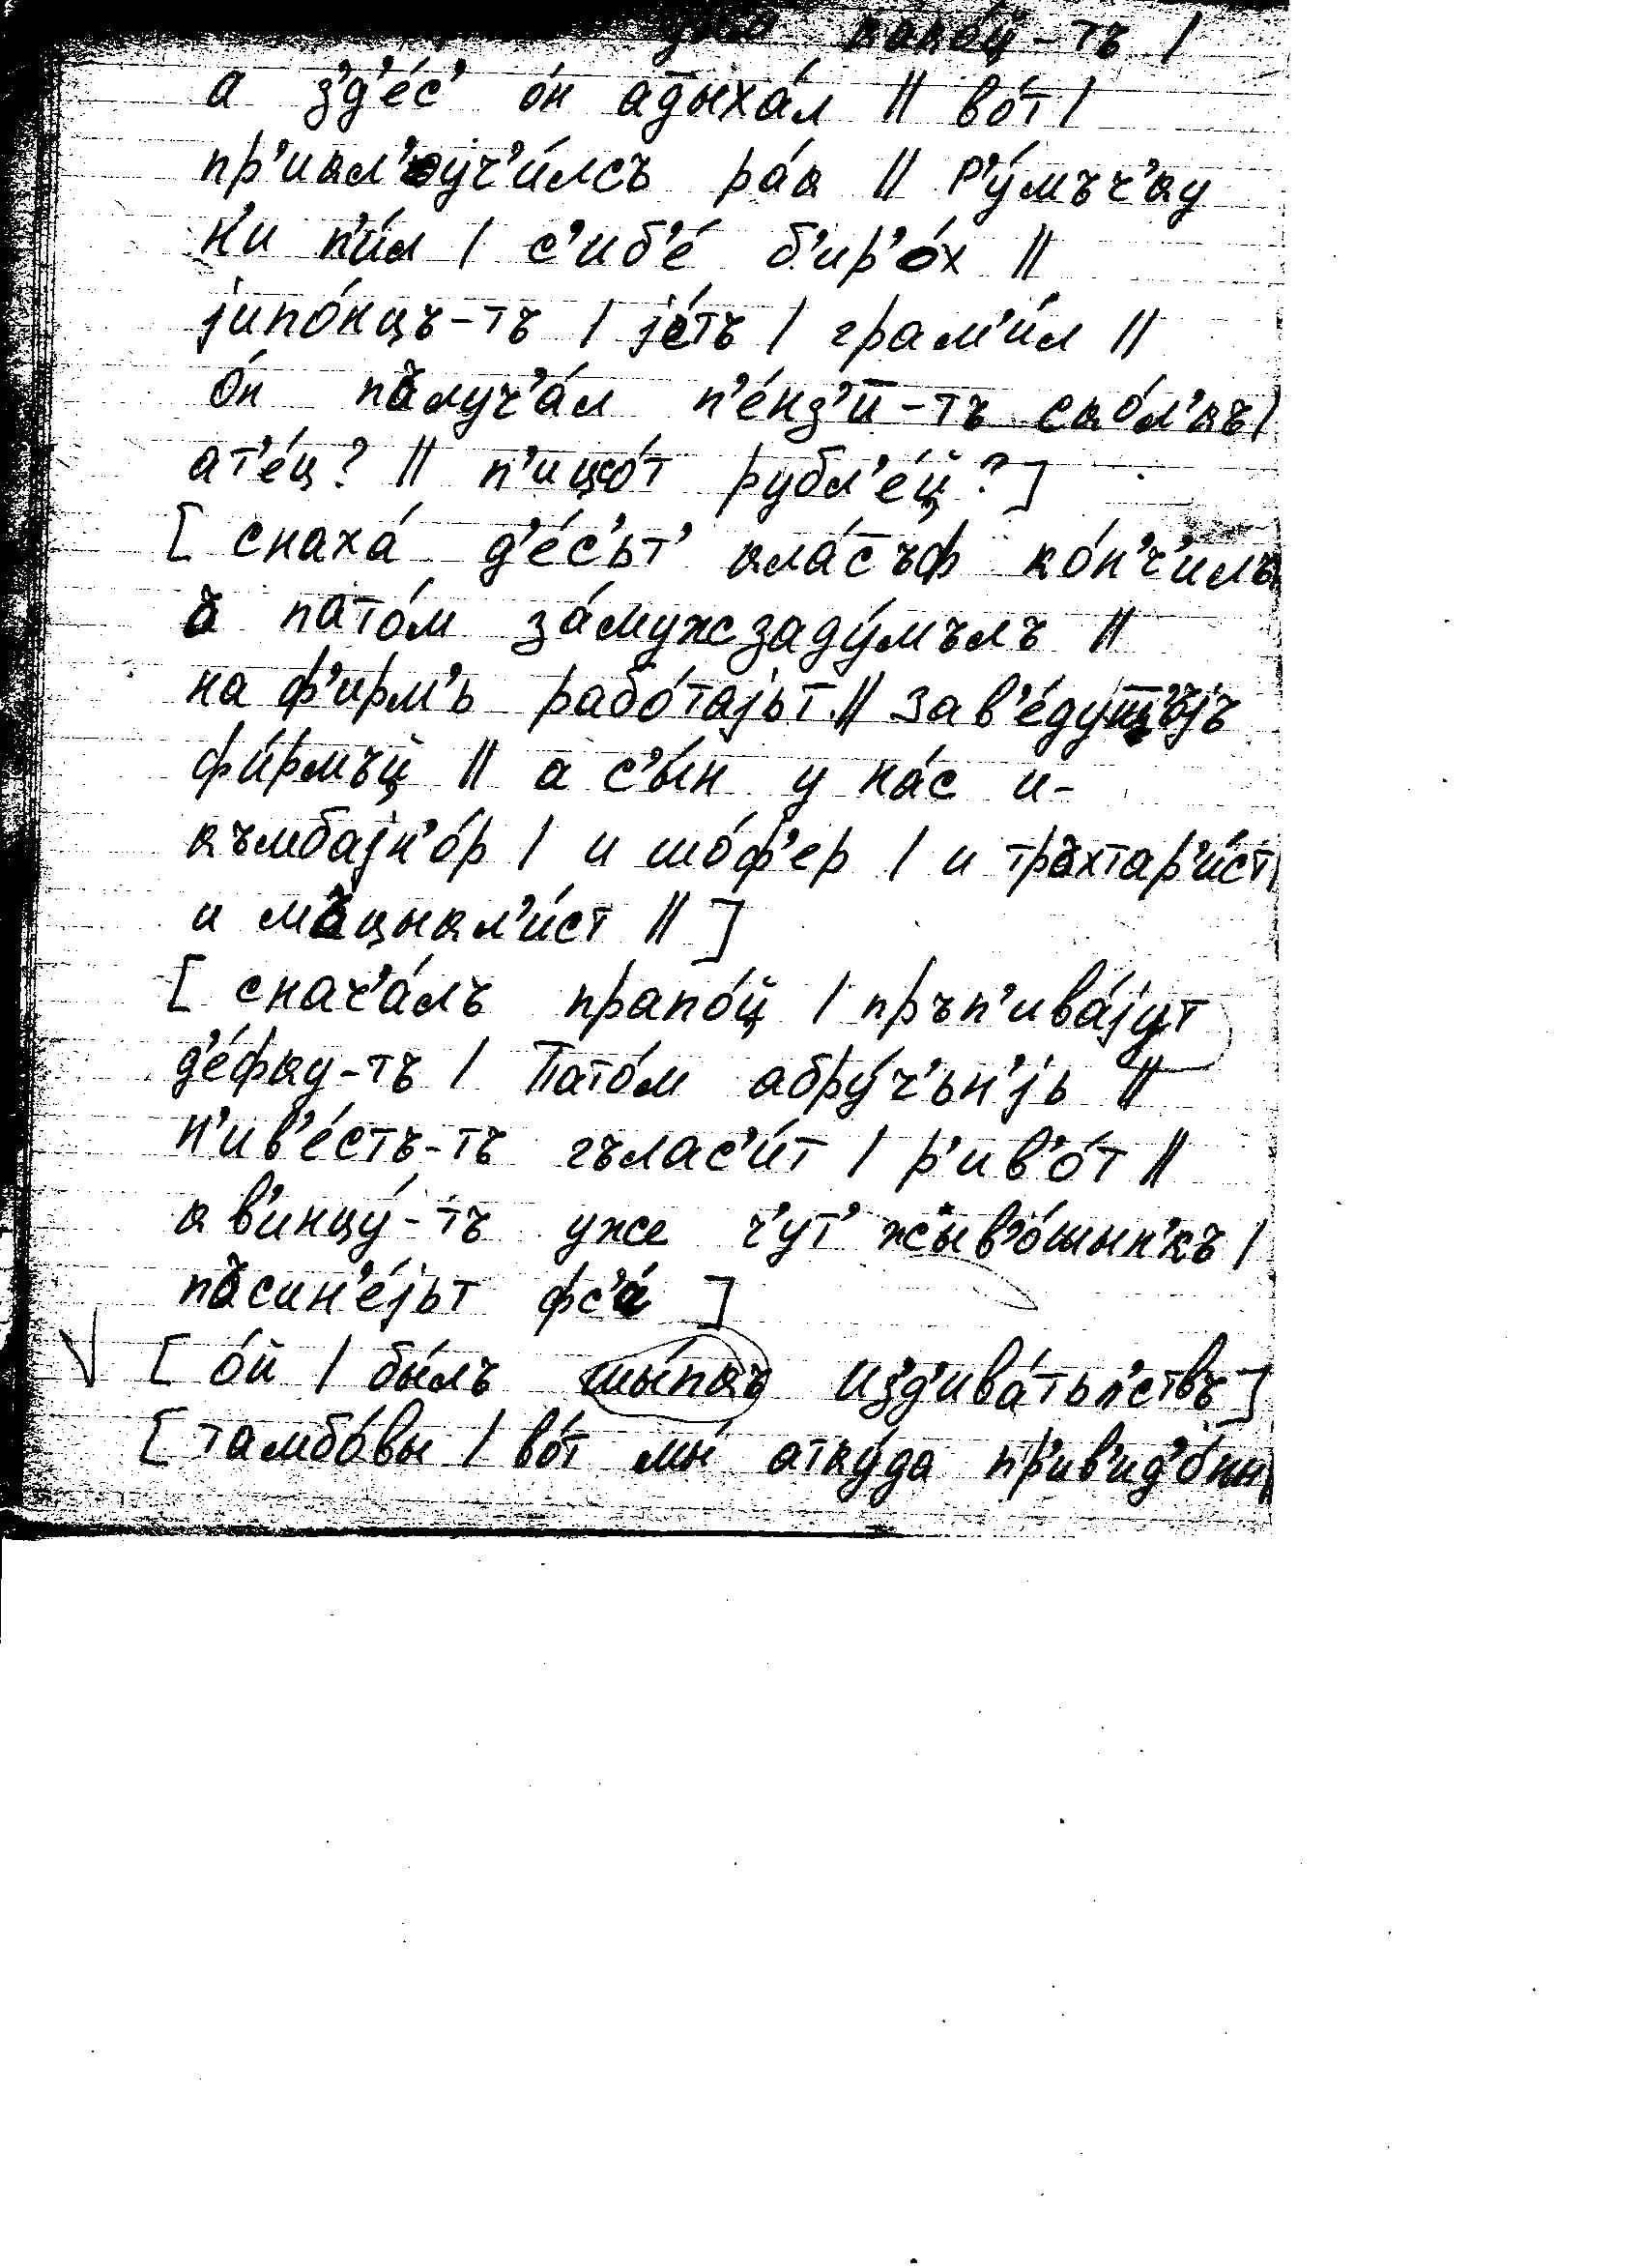 капо́й-тъ /
а з'д'е́с' о́н адыха́л // во́т /
пр'икл'уч'и́лсъ ра́к // р'у́мъч'ку
н'и п'и́л / с'иб'е́ б'ир'о́х //
jипо́нцъ-тъ / jе́тъ / грам'и́л //
о́н пъ̆луч'а́л п'е́нз'и-тъ ско́л'къ /
ат'е́ц? // п'ицо́т рубл'е́й?]
[ снаха́ д'е́с'ьт' кла́съф ко́н'ч'илъ
ъ пато́м за́мужзаду́мълъ //
на ф'ирм'ь рабо́таjьт // зав'е́дущ'ьjъ
фи́рмъй // а с'ы́н у на́с и-
къмбаjн'о́р / и шо́ф'ер / и тръхтар'и́ст /
и мъцыкл'и́ст // ]
[ снач'а́лъ прапо́й / пръп'ива́jут
д'е́фку-тъ / Пато́м абру́ч'ьн'jь //
н'ив'е́стъ-тъ гълас'и́т / р'ив'о́т //
к в'инцу́-тъ уже ч'ут' жыв'о́шын'къ /
пъсин'е́jьт фс'а́ ]
[ о́й / бы́лъ шы́пкъ из'д'ива́тьл'ствъ ]
[ тамбо́вы / во́т мы́ отку́да пр'ив'ид'о́ны